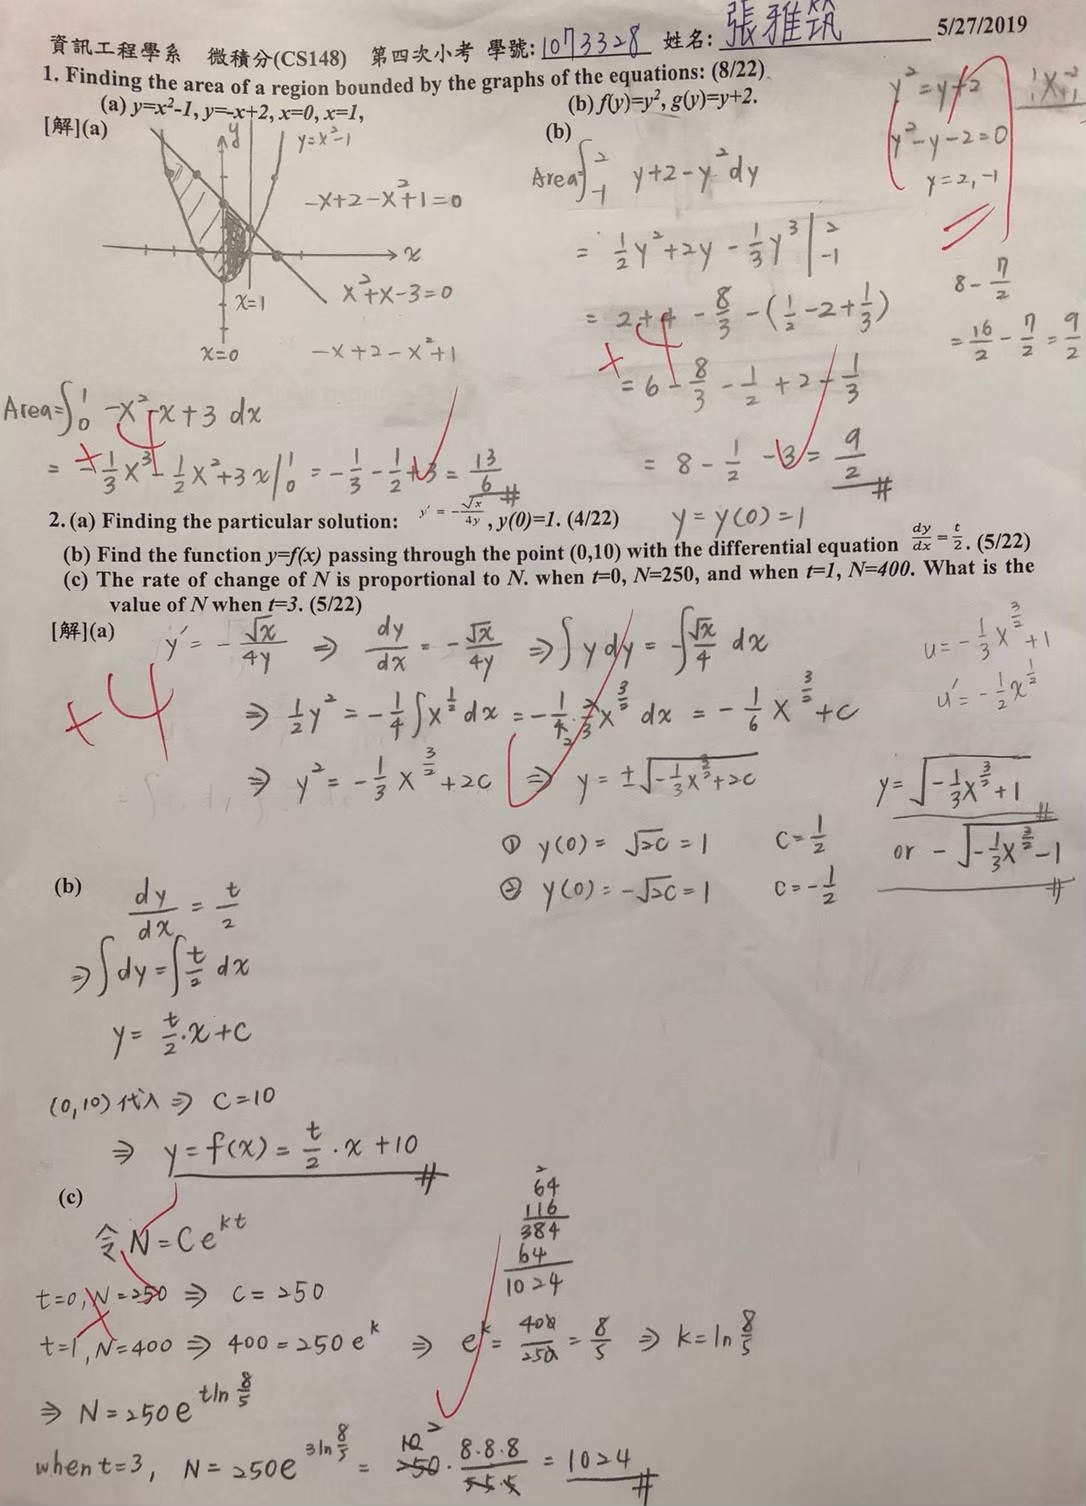 資訊工程學系 微積分(CS148) 第四次小考 學號: 1073328 姓名: 張雅筑 5/27/2019
1. Finding the area of a region bounded by the graphs of the equations: (8/22)
(a) y=x²-1, y=-x+2, x=0, x=1, (b) f(y)=y², g(y)=y+2.
[解](a)
y
y=x²-1
-x+2-x²+1=0
x
x²+x-3=0
x=1
x=0
-x+2-x²+1
Area=∫₀¹ -x²-x+3 dx
= -1/3 x³ - 1/2 x² + 3x |₀¹ = -1/3 - 1/2 + 3 = 13/6 #
(b)
y²=y+2
y²-y-2=0
y=2, -1
Area=∫₋₁² y+2-y² dy
= 1/2 y² + 2y - 1/3 y³ |₋₁²
= 2+4 - 8/3 - (1/2 - 2 + 1/3)
= 6 - 8/3 - 1/2 + 2 - 1/3
= 8 - 1/2 - 3 = 9/2 #
8 - 7/2
= 16/2 - 7/2 = 9/2
+4
+4
2. (a) Finding the particular solution: y' = -√x/4y , y(0)=1. (4/22)
y = y(0) = 1
(b) Find the function y=f(x) passing through the point (0,10) with the differential equation dy/dx = t/2. (5/22)
(c) The rate of change of N is proportional to N. when t=0, N=250, and when t=1, N=400. What is the
value of N when t=3. (5/22)
[解](a) y' = -√x/4y ⇒ dy/dx = -√x/4y ⇒ ∫y dy = ∫√x/4 dx
⇒ 1/2 y² = -1/4 ∫x^(1/2) dx = -1/4 · 2/3 x^(3/2) dx = -1/6 x^(3/2) + c
⇒ y² = -1/3 x^(3/2) + 2c ⇒ y = ±√(-1/3 x^(3/2) + 2c)
① y(0) = √2c = 1 c = 1/2
② y(0) = -√2c = 1 c = -1/2
u = -1/3 x^(3/2) + 1
u' = -1/2 x^(1/2)
y = √(-1/3 x^(3/2) + 1) #
or -√(-1/3 x^(3/2) - 1) #
+4
(b) dy/dx = t/2
⇒ ∫dy = ∫t/2 dx
y = t/2 · x + c
(0,10) 代入 ⇒ c=10
⇒ y = f(x) = t/2 · x + 10 #
(c)
令 N = Ce^(kt)
t=0, N=250 ⇒ c=250
t=1, N=400 ⇒ 400=250e^k ⇒ e^k = 400/250 = 8/5 ⇒ k = ln 8/5
⇒ N=250e^(t ln 8/5)
when t=3, N=250e^(3 ln 8/5) = 250 · 8·8·8/5·5·5 = 1024 #
2
64
116
384
64
1024